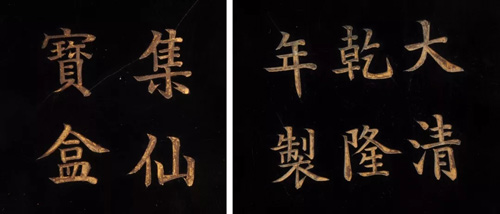 大清
乾隆
年製
集仙
寶盒